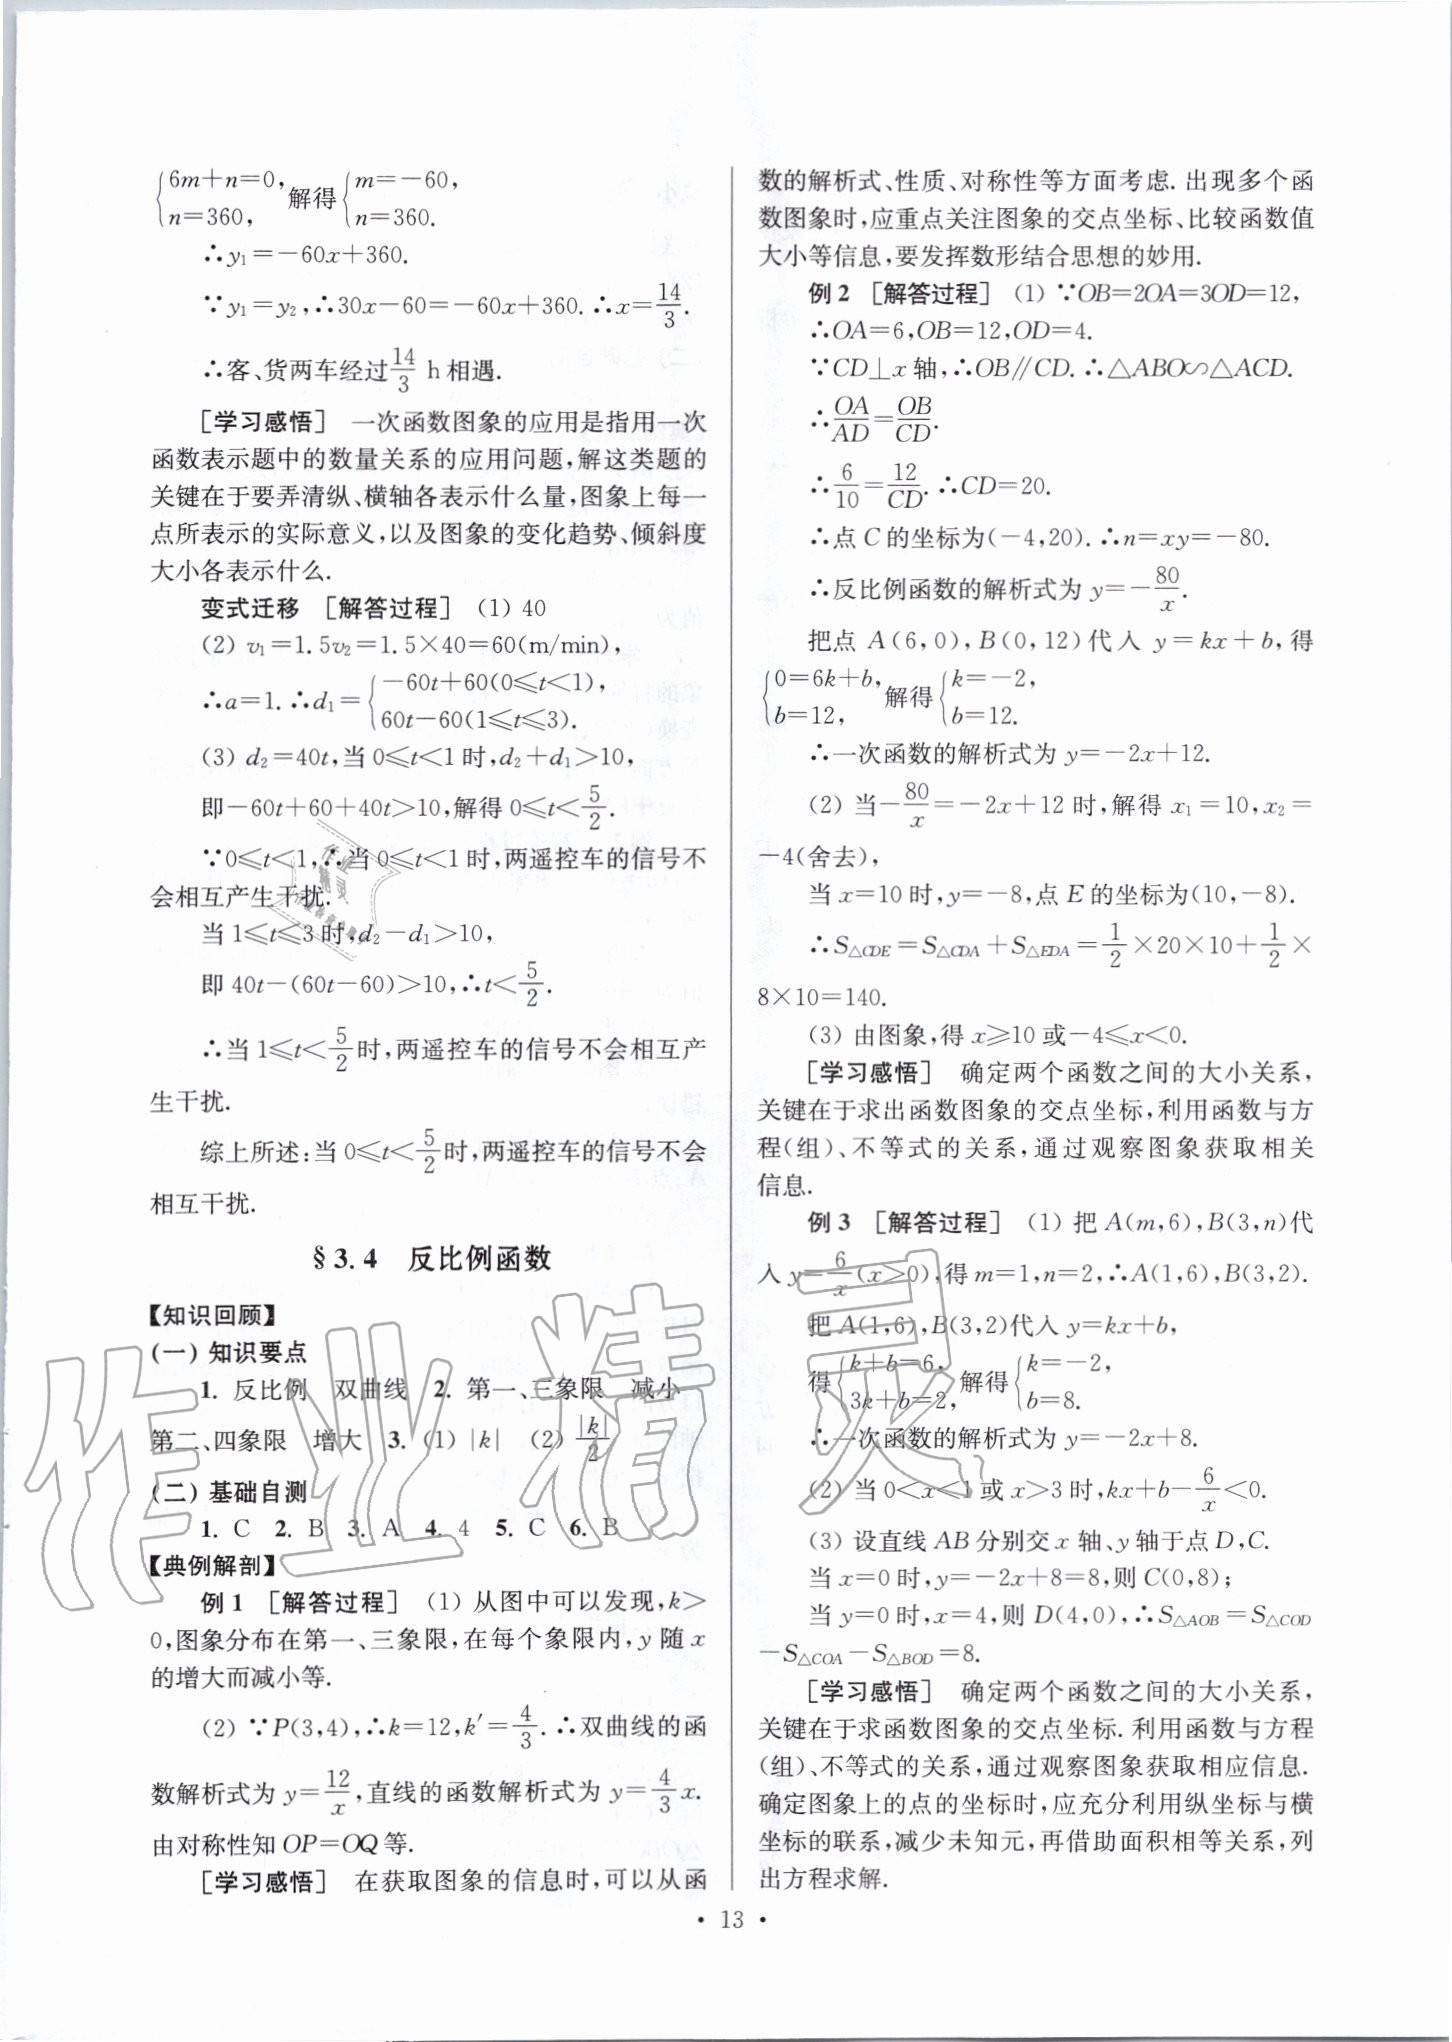 {6m+n=0, n=360, 解得 {m=-60, n=360.
∴y₁=-60x+360.
∵y₁=y₂,∴30x-60=-60x+360.∴x=14/3.
∴客、货两车经过14/3 h相遇.
[学习感悟] 一次函数图象的应用是指用一次
函数表示题中的数量关系的应用问题,解这类题的
关键在于要弄清纵、横轴各表示什么量,图象上每一
点所表示的实际意义,以及图象的变化趋势、倾斜度
大小各表示什么.
变式迁移 [解答过程] (1) 40
(2) v₁=1.5v₂=1.5×40=60(m/min),
∴a=1.∴d₁={-60t+60(0≤t<1), 60t-60(1≤t≤3).
(3) d₂=40t,当0≤t<1时,d₂+d₁>10,
即-60t+60+40t>10,解得0≤t<5/2.
∵0≤t<1,∴当0≤t<1时,两遥控车的信号不
会相互产生干扰.
当1≤t≤3时,d₂-d₁>10,
即40t-(60t-60)>10,∴t<5/2.
∴当1≤t<5/2时,两遥控车的信号不会相互产
生干扰.
综上所述:当0≤t<5/2时,两遥控车的信号不会
相互干扰.
§3.4 反比例函数
【知识回顾】
(一) 知识要点
1. 反比例 双曲线 2. 第一、三象限 减小
第二、四象限 增大 3. (1) |k| (2) |k|/2
(二) 基础自测
1. C 2. B 3. A 4. 4 5. C 6. B
【典例解剖】
例1 [解答过程] (1) 从图中可以发现,k>
0,图象分布在第一、三象限,在每个象限内,y随x
的增大而减小等.
(2) ∵P(3,4),∴k=12,k′=4/3.∴双曲线的函
数解析式为y=12/x,直线的函数解析式为y=4/3x.
由对称性知OP=OQ等.
[学习感悟] 在获取图象的信息时,可以从函
数的解析式、性质、对称性等方面考虑.出现多个函
数图象时,应重点关注图象的交点坐标、比较函数值
大小等信息,要发挥数形结合思想的妙用.
例2 [解答过程] (1) ∵OB=2OA=3OD=12,
∴OA=6,OB=12,OD=4.
∵CD⊥x轴,∴OB∥CD.∴△ABO∽△ACD.
∴OA/AD=OB/CD.
∴6/10=12/CD.∴CD=20.
∴点C的坐标为(-4,20).∴n=xy=-80.
∴反比例函数的解析式为y=-80/x.
把点A(6,0),B(0,12)代入y=kx+b,得
{0=6k+b, b=12, 解得 {k=-2, b=12.
∴一次函数的解析式为y=-2x+12.
(2) 当-80/x=-2x+12时,解得x₁=10,x₂=
-4(舍去),
当x=10时,y=-8,点E的坐标为(10,-8).
∴S△CDE=S△CDA+S△EDA=1/2×20×10+1/2×
8×10=140.
(3) 由图象,得x≥10或-4≤x<0.
[学习感悟] 确定两个函数之间的大小关系,
关键在于求出函数图象的交点坐标,利用函数与方
程(组)、不等式的关系,通过观察图象获取相关
信息.
例3 [解答过程] (1) 把A(m,6),B(3,n)代
入y=6/x(x>0),得m=1,n=2,∴A(1,6),B(3,2).
把A(1,6),B(3,2)代入y=kx+b,
得{k+b=6, 3k+b=2, 解得{k=-2, b=8.
∴一次函数的解析式为y=-2x+8.
(2) 当0<x<1或x>3时,kx+b-6/x<0.
(3) 设直线AB分别交x轴、y轴于点D,C.
当x=0时,y=-2x+8=8,则C(0,8);
当y=0时,x=4,则D(4,0),∴S△AOB=S△COD
-S△COA-S△BOD=8.
[学习感悟] 确定两个函数之间的大小关系,
关键在于求函数图象的交点坐标.利用函数与方程
(组)、不等式的关系,通过观察图象获取相应信息.
确定图象上的点的坐标时,应充分利用纵坐标与横
坐标的联系,减少未知元,再借助面积相等关系,列
出方程求解.
· 13 ·
作业精灵